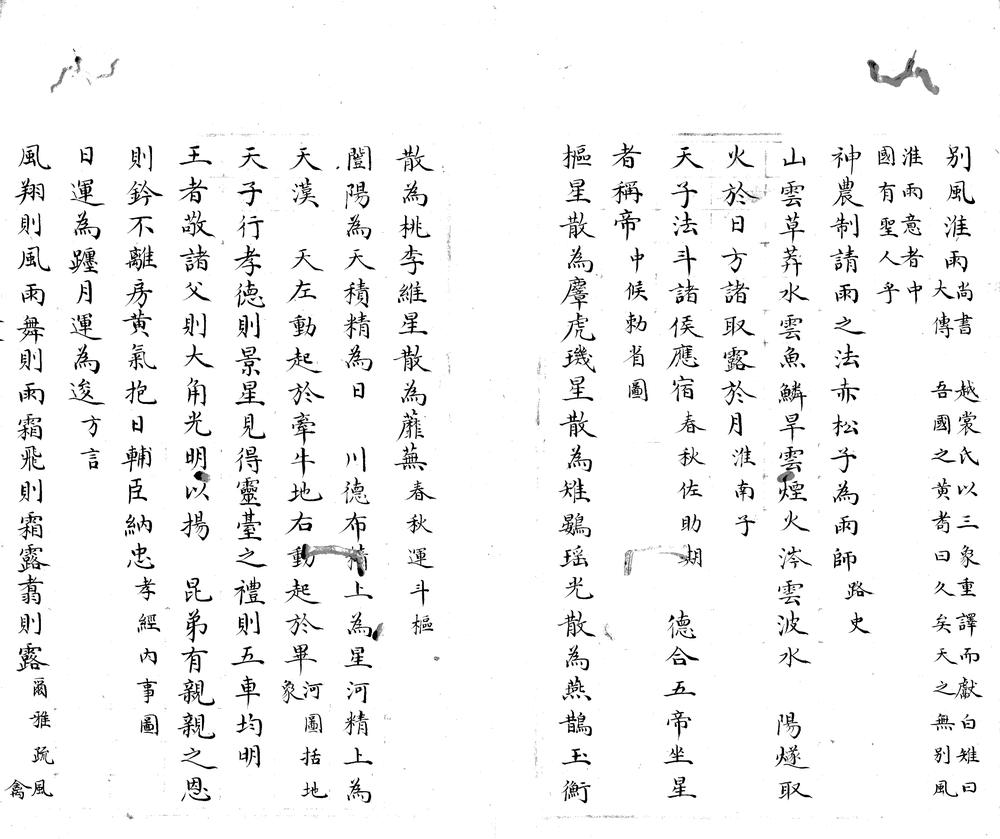 别風淮雨尚書大傳 越裳氏以三象重譯而獻白雉曰吾國之黄耈曰久矣天之無别風
淮雨意者中國有聖人乎
神農制請雨之法赤松子為雨師路史
山雲草莽水雲魚鱗旱雲煙火涔雲波水 陽燧取
火於日方諸取露於月淮南子
天子法斗諸侯應宿春秋佐助期 德合五帝坐星
者稱帝中候勑省圖
樞星散為麞虎璣星散為雉鷃瑶光散為燕鵲玉衡
散為桃李維星散為蘼蕪春秋運斗樞
闓陽為天積精為日 川德布精上為星河精上為
天漢 天左動起於牽牛地右動起於畢河圖括地象
天子行孝德則景星見得靈臺之禮則五車均明
王者敬諸父則大角光明以揚 昆弟有親親之恩
則鈐不離房黄氣抱日輔臣納忠孝經內事圖
日運為躔月運為逡方言
風翔則風雨舞則雨霜飛則霜露翥則露爾雅疏風禽